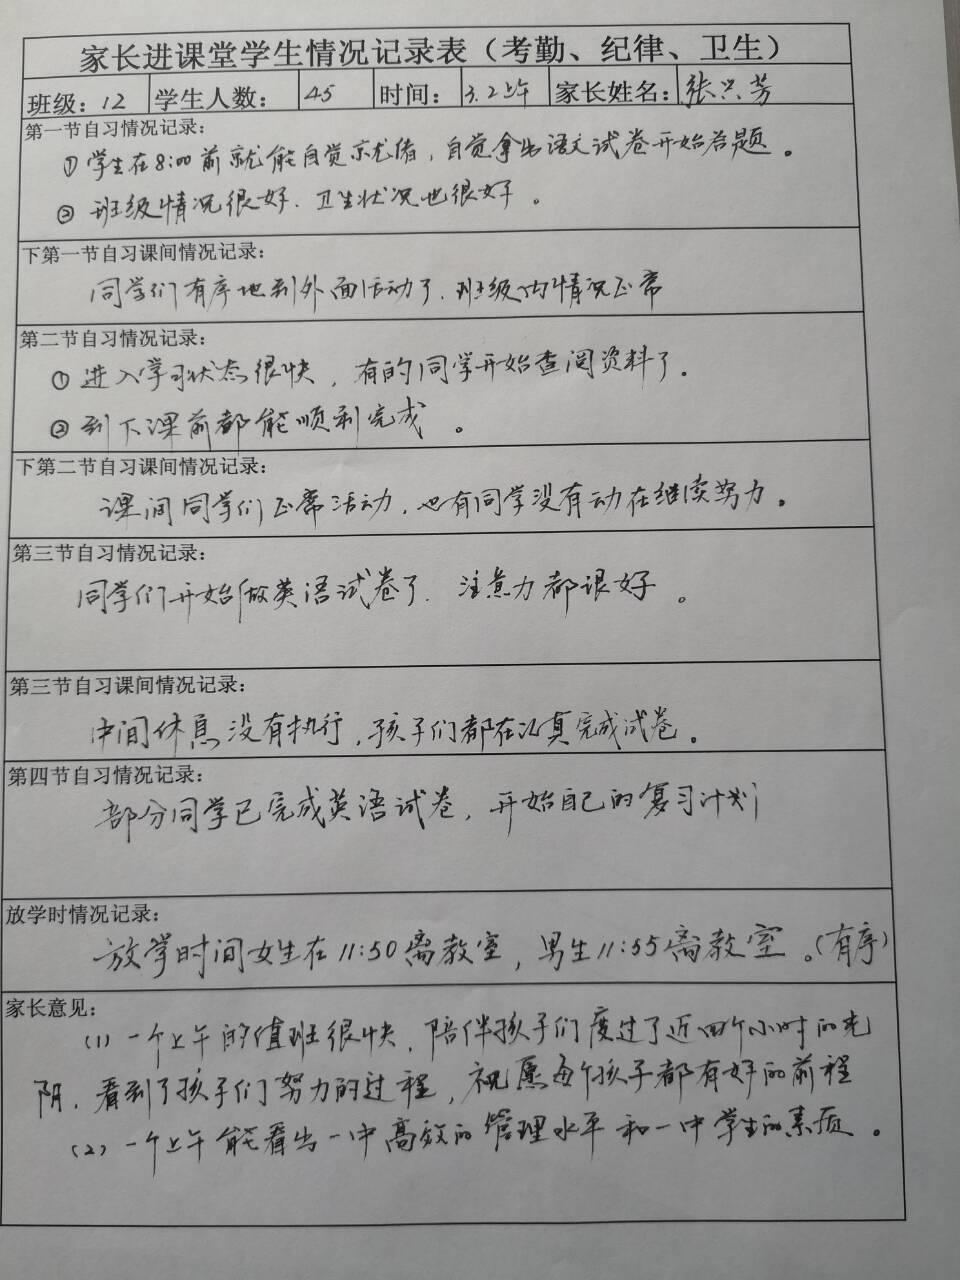 家长进课堂学生情况记录表（考勤、纪律、卫生）
班级：12 学生人数： 45 时间： 3.2上午 家长姓名：张兴芳
第一节自习情况记录：
①学生在8:00前就能自觉就绪，自觉拿出语文试卷开始答题。
②班级情况很好．卫生状况也很好。
下第一节自习课间情况记录：
同学们有序地到外面活动了．班级内情况正常
第二节自习情况记录：
①进入学习状态很快，有的同学开始查阅资料了．
②到下课前都能顺利完成。
下第二节自习课间情况记录：
课间同学们正常活动，也有同学没有动在继续努力。
第三节自习情况记录：
同学们开始做英语试卷了．注意力都很好。
第三节自习课间情况记录：
中间休息没有执行，孩子们都在认真完成试卷。
第四节自习情况记录：
部分同学已完成英语试卷，开始自己的复习计划
放学时情况记录：
放学时间女生在11:50离教室，男生11:55离教室。（有序）
家长意见：
(1) 一个上午的值班很快．陪伴孩子们度过了近四个小时的光
阴．看到了孩子们努力的过程，祝愿每个孩子都有好的前程
(2) 一个上午能看出一中高效的管理水平和一中学生的素质。